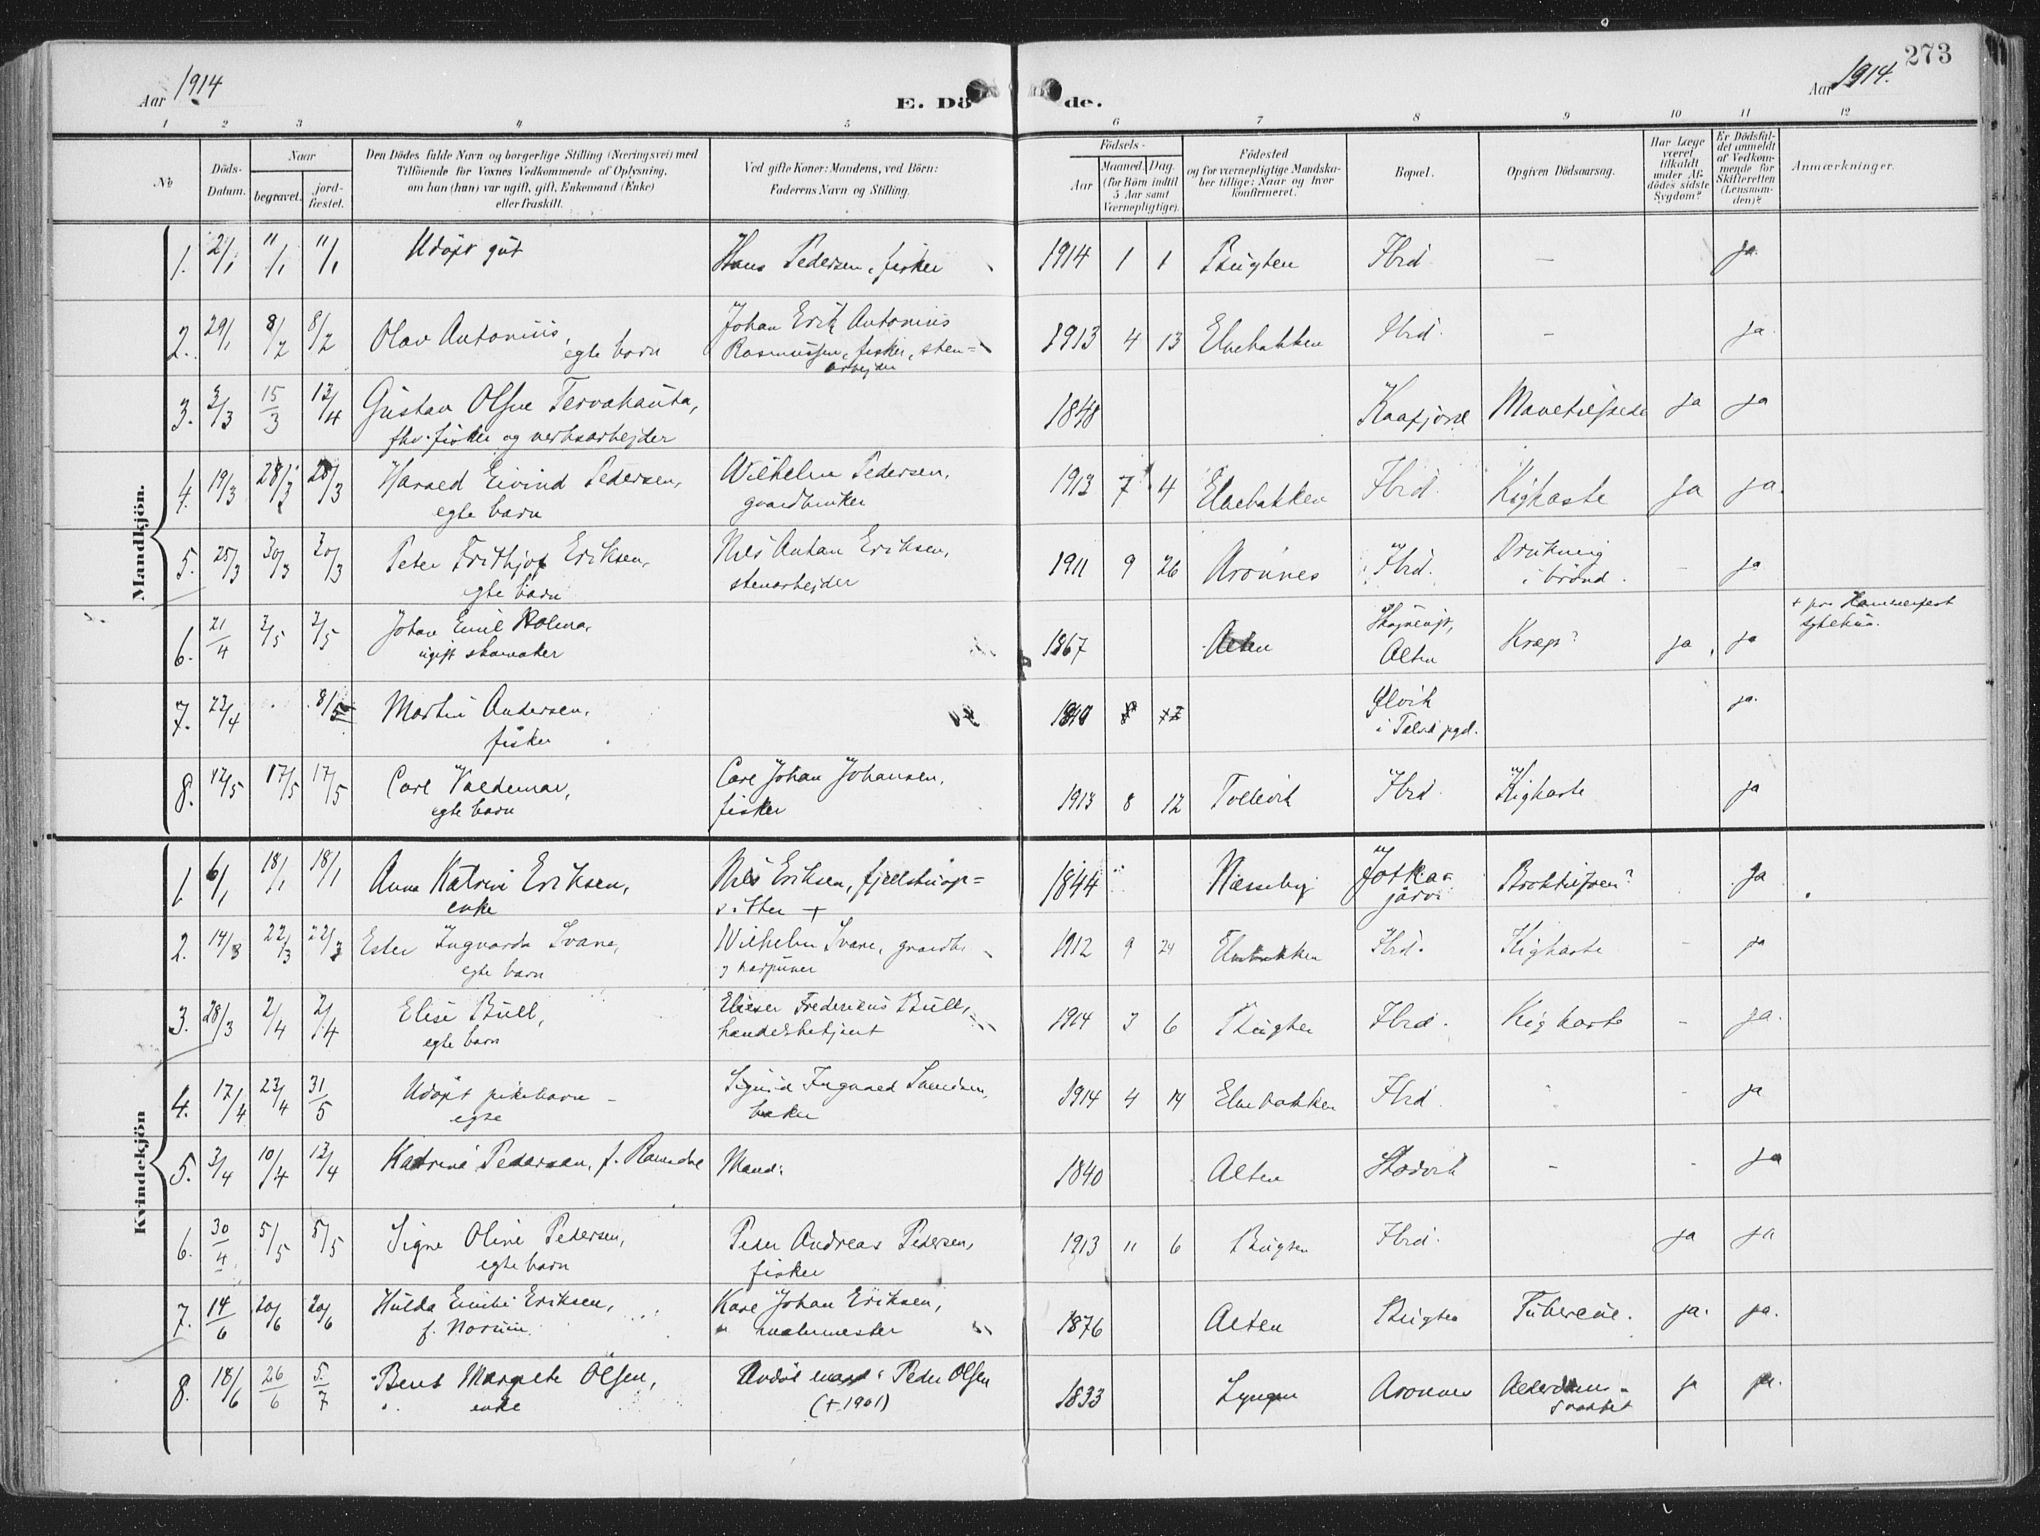 273
Aar 1914
Aar 1914.
E. Dö de.
1 2 3 4 5 6 7 8 9 10 11 12
No
Döds-Datum.
Naar
begravet.
jord-fæstet.
Den Dödes fulde Navn og borgerlige Stilling (Næringsvei) med Tilföiende for Voxnes Vedkommende af Oplysning, om han (hun) var ugift, gift, Enkemand (Enke) eller fraskilt.
Ved gifte Koner: Mandens, ved Börn: Faderens Navn og Stilling.
Födsels-
Aar
Maaned. Dag.
(for Börn indtil 5 Aar samt Værnepligtige).
Födested og for værnepligtige Mandskaber tillige: Naar og hvor konfirmeret.
Bopæl.
Opgiven Dödsaarsag.
Har Læge været tilkaldt under Afdödes sidste Sygdom?
Er Dödsfaldet anmeldt af Vedkommende for Skifteretten (Lensmanden)?
Anmærkninger.
Mandkjön.
1. 2/1 "/1 "/1 Udöpt gut Hans Pedersen, fisker 1914 1 1 Bugten Ibid — ja.
2. 29/1 8/2 8/2 Olav Antonius, egte barn Johan Erik Antonius Rasmussen, fisker, stenarbejder 1913 4 13 Elvebakken Ibid — ja.
3. 3/3 15/3 13/4 Gustav Olsen Tervahauta, fhv. fisker og verksarbejder 1848 Kaafjord ja ja
4. 19/3 28/3 28/3 Harald Eivind Pedersen, egte barn Wilhelm Pedersen, gaardbruker 1913 7 4 Elvebakken Ibid. Kighoste ja ja.
5. 25/3 30/3 30/3 Peter Frithjof Eriksen, egte barn Nils Antan Eriksen, stenarbejder 1911 9 26 Aronnes Ibid. Drukning i brönd. - ja
6. 21/4 3/5 3/5 Johan Emil Holma, ugift skomaker 1867 Alten Alten Kræft? ja ja + paa Hammerfest sykehus.
7. 23/4 8/5 Martin Andersen, fisker 1840 i Talvik pgd. ja.
8. 12/5 17/5 17/5 Carl Valdemar, egte barn Carl Johan Johansen, fisker 1913 8 12 Tollevik Ibid Kighoste ja
Kvindekjön
1. 6/1 18/1 18/1 Anna Katrine Eriksen, enke Nils Eriksen, fjellstuop=sitter + 1844 Næsseby Jotkajärvi ja
2. 14/3 22/3 22/3 Ester Ingvarda Svane, egte barn Wilhelm Svane, gaardbr. 1912 9 24 Elvebakken Ibid. Kighoste - ja
3. 28/3 2/4 2/4 Elise Bull, egte barn Elieser Frederikus Bull, handelsbetjent 1914 3 6 Bugten Ibid. Kighoste - ja.
4. 17/4 23/4 31/5 Udöpt pikebarn - egte Sigurd Ingvald baker 1914 4 14 Elvebakken Ibid. ja
5. 3/4 10/4 13/4 Katrine Pedersen, f. Mand: 1840 Alten — - ja
6. 30/4 5/5 5/5 Signe Oline Pedersen, egte barn Peder Andreas Pedersen, fisker 1913 11 6 Bugten Ibid. ja ja
7. 14/6 20/6 20/6 Hulda Emilie Eriksen, f. Norum. Karl Johan Eriksen, malermester 1876 Alten Bugten Tubercul. ja. ja.
8. 18/6 26/6 5/7 Berit Margrete Olsen, enke mand: Peder Olsen (+ 1901) 1833 Lyngen Aronnes ja ja.